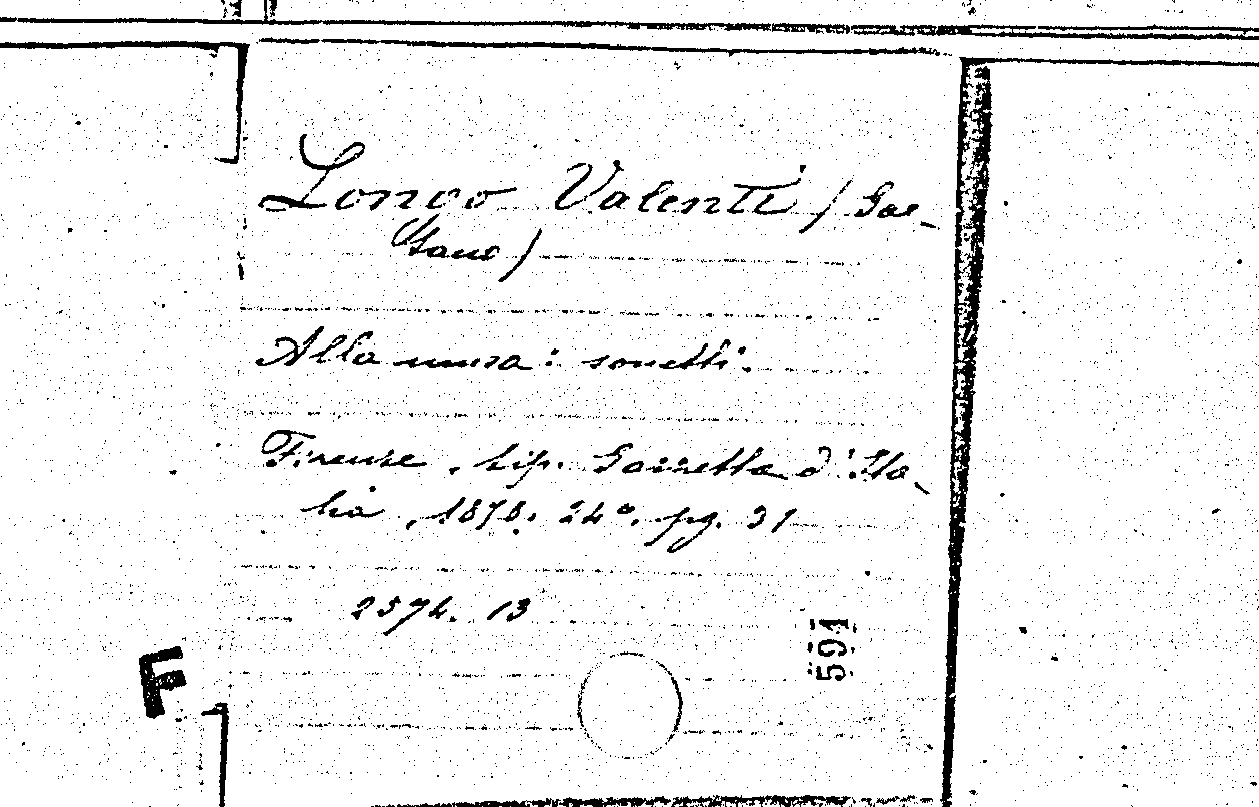 Longo Valenti (Gae-
tano)
Alla musa: sonetti.
Firenze, tip. Gazzetta d'Ita-
lia, 1878. 24°. pg. 31
2574. 13
591
F